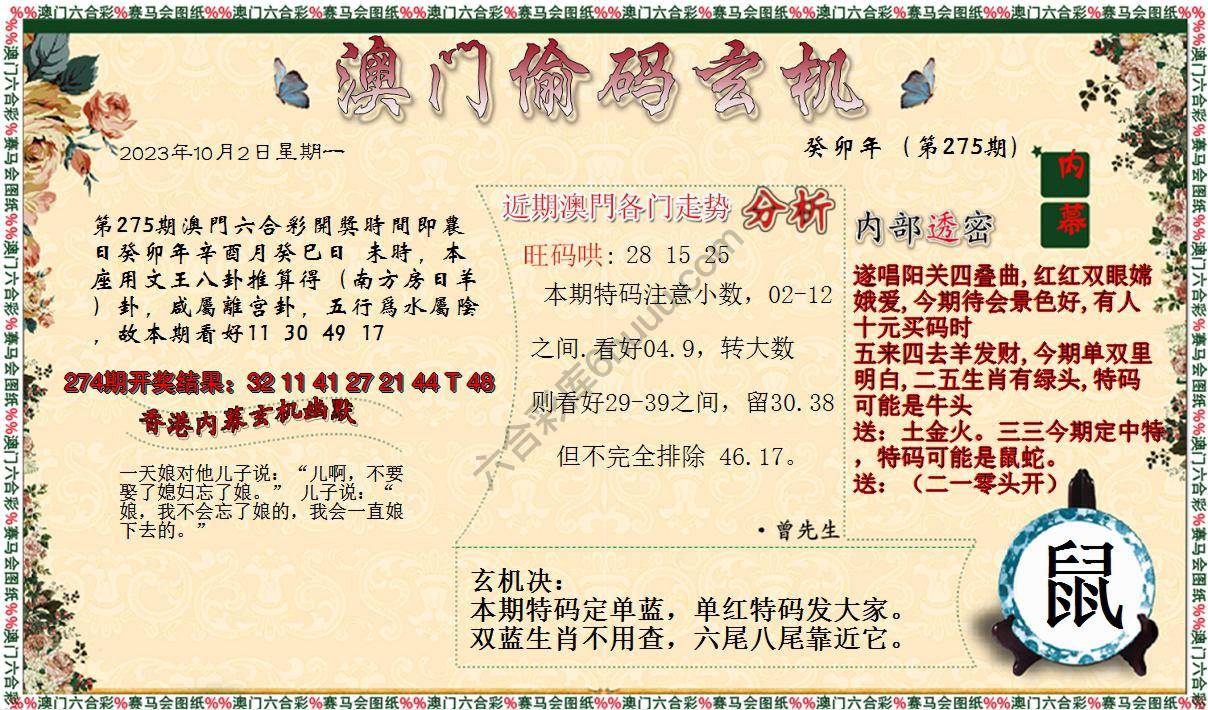 %%澳门六合彩%赛马会图纸%%澳门六合彩%赛马会图纸%%澳门六合彩%赛马会图纸%%澳门六合彩%赛马会图纸%%澳门六合彩%赛马会图纸%%澳门六合彩%赛马会图纸%%
澳门偷码玄机
2023年10月2日星期一
癸卯年（第275期）
内
幕
第275期澳門六合彩開獎時間即農
日癸卯年辛酉月癸巳日 未時，本
座用文王八卦推算得（南方房日羊
）卦，咸屬離宫卦，五行爲水屬陰
，故本期看好11 30 49 17
274期开奖结果：32 11 41 27 21 44 T 48
香港内幕玄机幽默
一天娘对他儿子说：“儿啊，不要
娶了媳妇忘了娘。” 儿子说：“
娘，我不会忘了娘的，我会一直娘
下去的。”
近期澳門各门走势 分析
旺码哄: 28 15 25
本期特码注意小数，02-12
之间.看好04.9，转大数
则看好29-39之间，留30.38
但不完全排除 46.17。
·曾先生
内部透密
遂唱阳关四叠曲,红红双眼嫦
娥爱,今期待会景色好,有人
十元买码时
五来四去羊发财,今期单双里
明白,二五生肖有绿头,特码
可能是牛头
送：土金火。三三今期定中特
，特码可能是鼠蛇。
送：（二一零头开）
玄机决：
本期特码定单蓝，单红特码发大家。
双蓝生肖不用查，六尾八尾靠近它。
鼠
%%澳门六合彩%赛马会图纸%%澳门六合彩%赛马会图纸%%澳门六合彩%赛马会图纸%%澳门六合彩%赛马会图纸%%澳门六合彩%赛马会图纸%%澳门六合彩%赛马会图纸%%